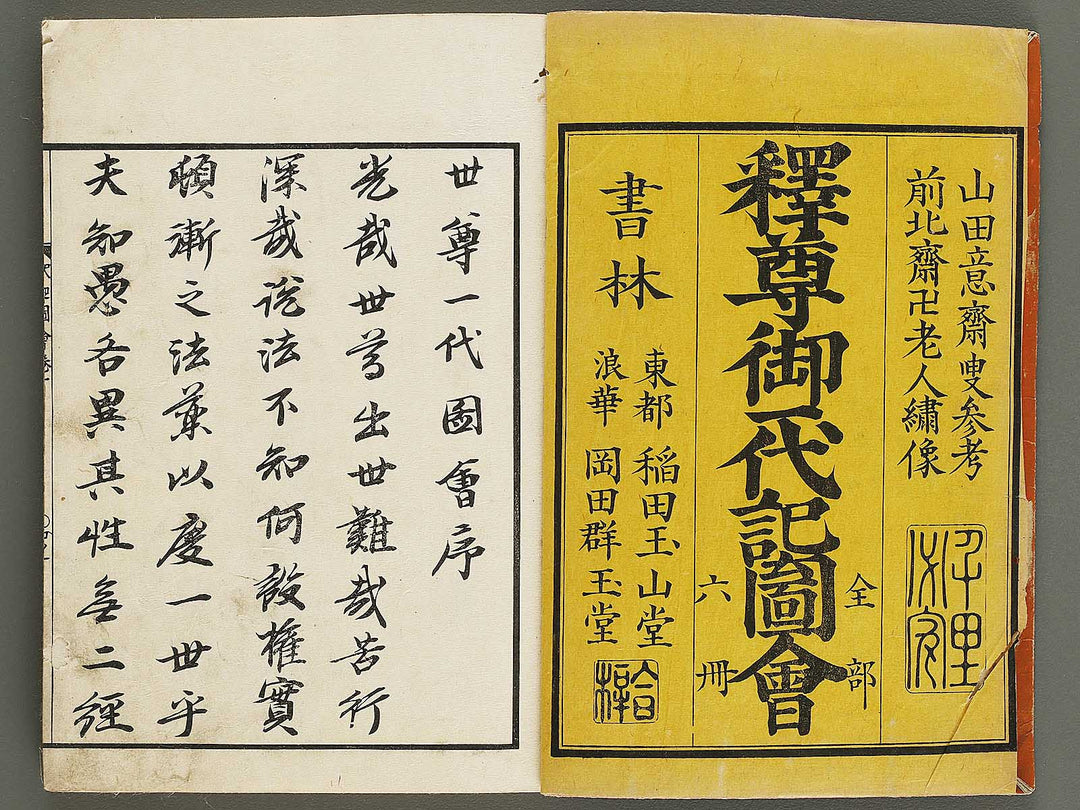 山田意齋叟参考
前北齋卍老人繡像
釋尊御一代記圖會
全部
六冊
書林
東都 稲田玉山堂
浪華 岡田群玉堂
世尊一代圖會序
光哉世尊出世難哉苦行
深哉説法不知何設權實
頓漸之法藥以度一世乎
夫知愚各異其性無二經